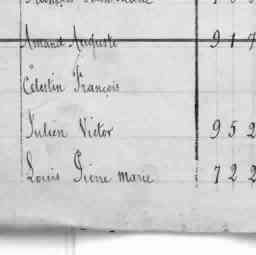 Amand Auguste 9 1 7
Célestin François
Julien Victor 9 5 2
Louis Pierre Marie 7 2 2